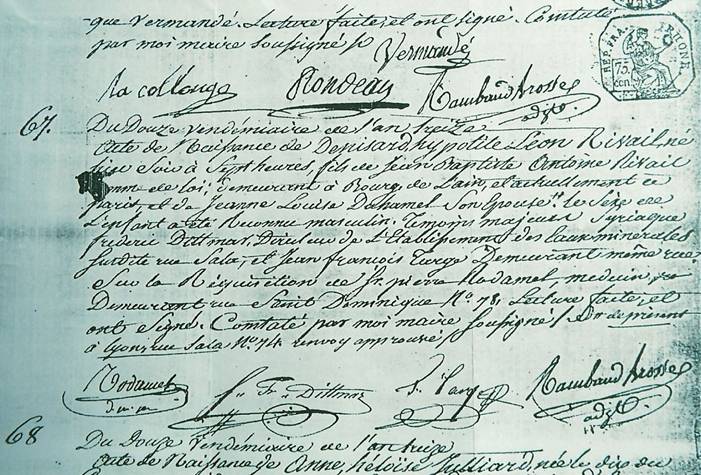 que Vermandé. Lecture faite, et ont signé. Constaté
par moi maire soussigné
Vermandé
REP. FRA.
RHONE
75
cen.
la collonge Rondeau Rambaud Brosse
adjt
67. Du Douze Vendémiaire de l'an treize
Acte de Naissance de Denisard, hypolite Léon Rivail, né
hier Soir à Sept heures, fils de Jean Baptiste Antoine Rivail
homme de loi, demeurant à Bourg de l'ain, et actuellement à
paris, et de Jeanne Louise Duhamel Son Epouse. le Sexe de
L'enfant a été Reconnu masculin. Témoins majeurs Syriaque
frederic Dittmar, Directeur de l'Etablissement des Eaux minérales
Susdite rue Sala, et Jean François Targe Demeurant même rue
Sur la Réquisition de Sr. pierre Rodamel, medecin,
Demeurant rue Saint Dominique No. 78, Lecture faite, et
ont signé. Constaté par moi maire Soussigné
à Lyon, rue Sala No. 74 renvoy approuvé
Rodamel
Fr. Dittmar
Rambaud Brosse
adjt
68 Du Douze Vendémiaire de l'an treize
Acte de Naissance de Anne, héloïse Julliard, née le dix du